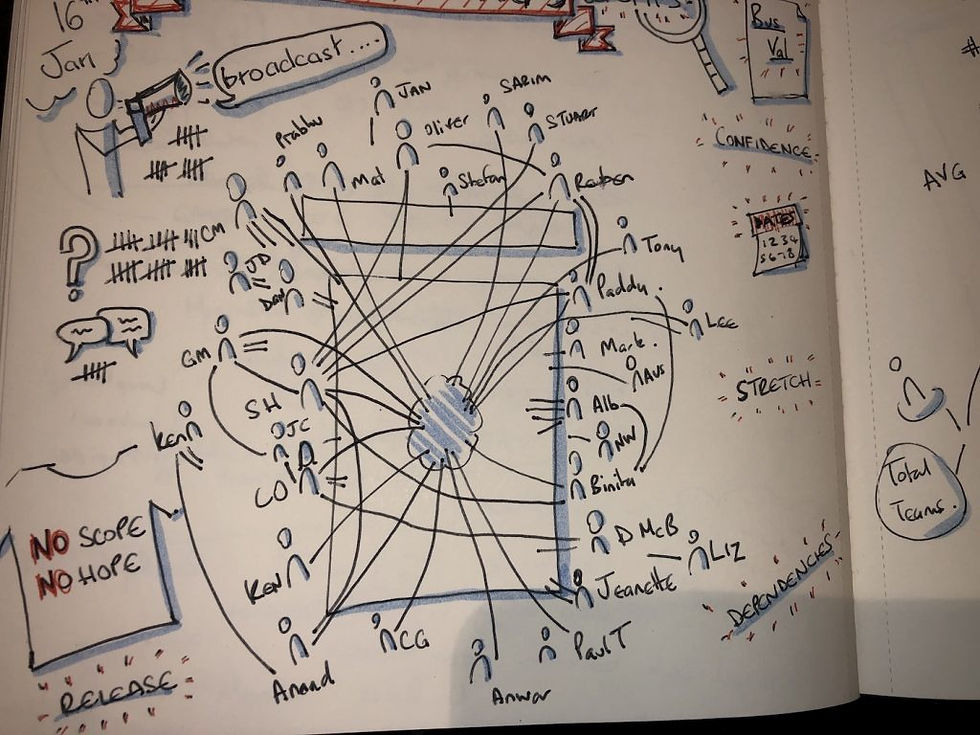 16th
Jan
broadcast....
Bus
Val
JAN
SARIM
Prabhu
Oliver
STUART
Mat
Stefan
Reuben
CONFIDENCE
AVG
CM
JD
Tony
DATES
1 2 3 4
5 6 7 8
Paddy.
GM
LEE
Mark.
AVS
STRETCH
SH
Alb
JC
NW
Ken
CO
Binita
Total
Teams.
NO SCOPE
NO HOPE
D McB
LIZ
KEN
Jeanette
DEPENDENCIES
CG
PaulT
Anand
Anwar
RELEASE